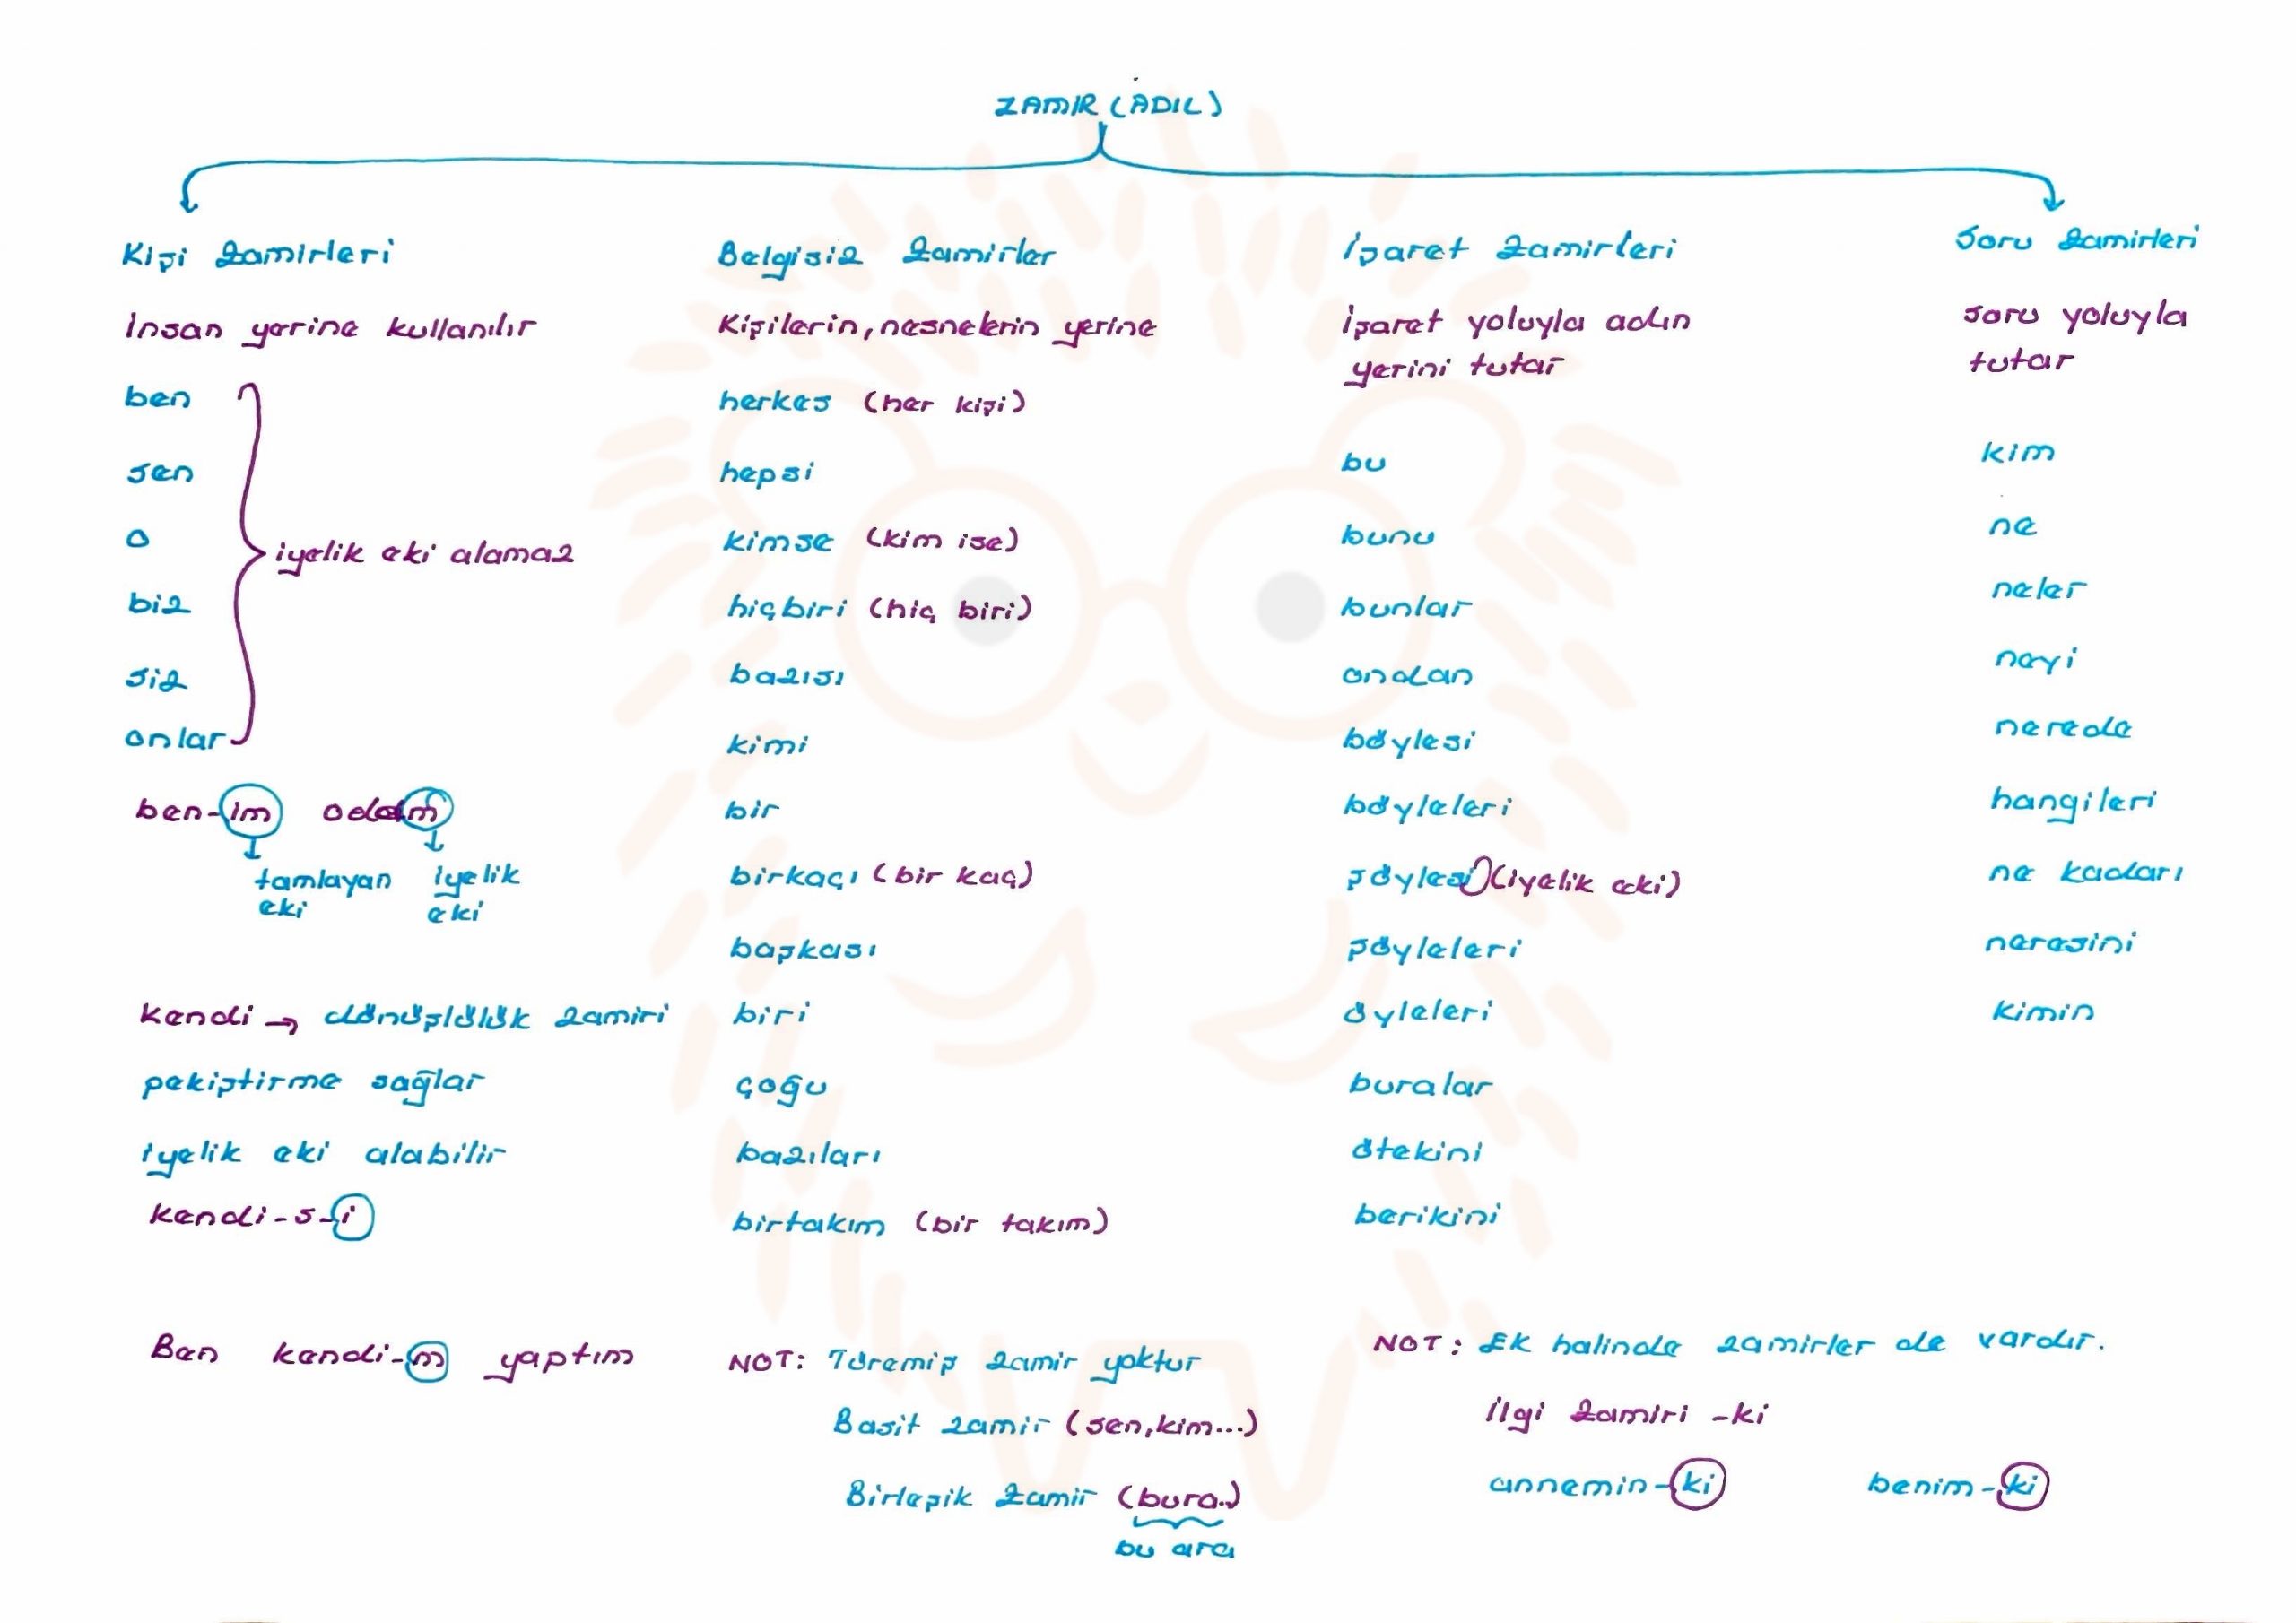 ZAMIR (ADIL)
Kişi Zamirleri
İnsan yerine kullanılır
ben
sen
o
biz
siz
onlar
iyelik eki alamaz
ben-im odam
tamlayan eki
iyelik eki
kendi → dönüşlülük zamiri
pekiştirme sağlar
iyelik eki alabilir
kendi-s-i
Ben kendi-m yaptım
Belgisiz Zamirler
Kişilerin, nesnelerin yerine
herkes (her kişi)
hepsi
kimse (kim ise)
hiçbiri (hiç biri)
bazısı
kimi
bir
birkaçı (bir kaç)
başkası
biri
çoğu
bazıları
birtakım (bir takım)
NOT: Türemiş zamir yoktur
Basit zamir (sen, kim...)
Birleşik Zamir (bura..)
bu ara
İşaret Zamirleri
İşaret yoluyla adın
yerini tutar
bu
bunu
bunlar
ondan
böylesi
böyleleri
şöylesi (iyelik eki)
şöyleleri
öyleleri
buralar
ötekini
berikini
NOT: Ek halinde zamirler de vardır.
İlgi Zamiri -ki
annemin-ki benim-ki
Soru Zamirleri
soru yoluyla
tutar
kim
ne
neler
neyi
nerede
hangileri
ne kadarı
neresini
kimin